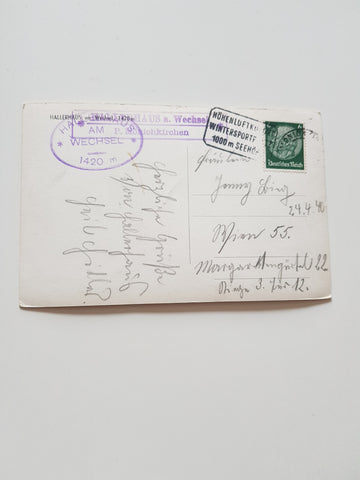 HALLERHAUS
HALLERHAUS a. Wechsel
HALLERHAUS
AM
WECHSEL
1420 m
HÖHENLUFTKU
WINTERSPORTP
1000 m SEEHÖ
Deutsches Reich
Herzliche Grüße
vom Hallerhaus
Fräulein
Jenny
24.4.40
Wien 55.
Margaretengürtel 22
Stiege 3. Tür 12.